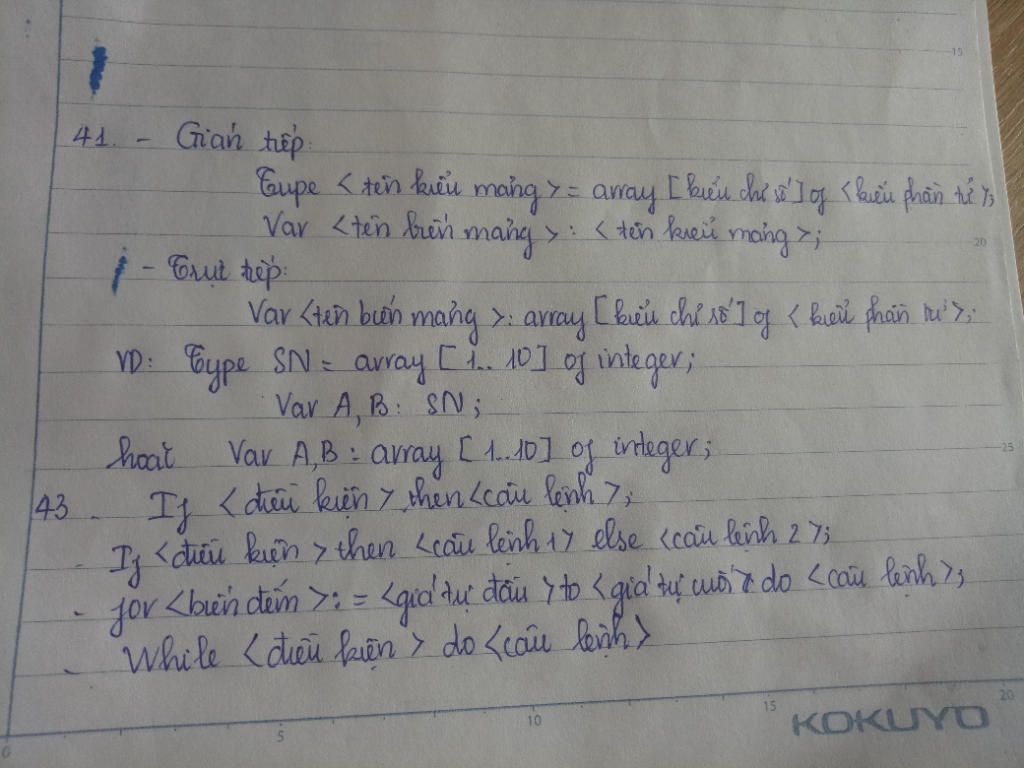 15
41. - Gián tiếp:
Type < tên kiểu mảng > = array [kiểu chỉ số] of <kiểu phần tử>;
Var <tên biến mảng> : <tên kiểu mảng>;
20
- Trực tiếp:
Var <tên biến mảng>: array [kiểu chỉ số] of <kiểu phần tử>;
VD: Type SN = array [1..10] of integer;
Var A, B: SN;
hoặt Var A, B: array [1..10] of integer;
25
43 - If <điều kiện> then <câu lệnh>;
- If <điều kiện> then <câu lệnh 1> else <câu lệnh 2>;
- for <biến đếm> := <giá tự đầu> to <giá tự cuối> do <câu lệnh>;
- While <điều kiện> do <câu lệnh>
0 5 10 15 20
KOKUYO